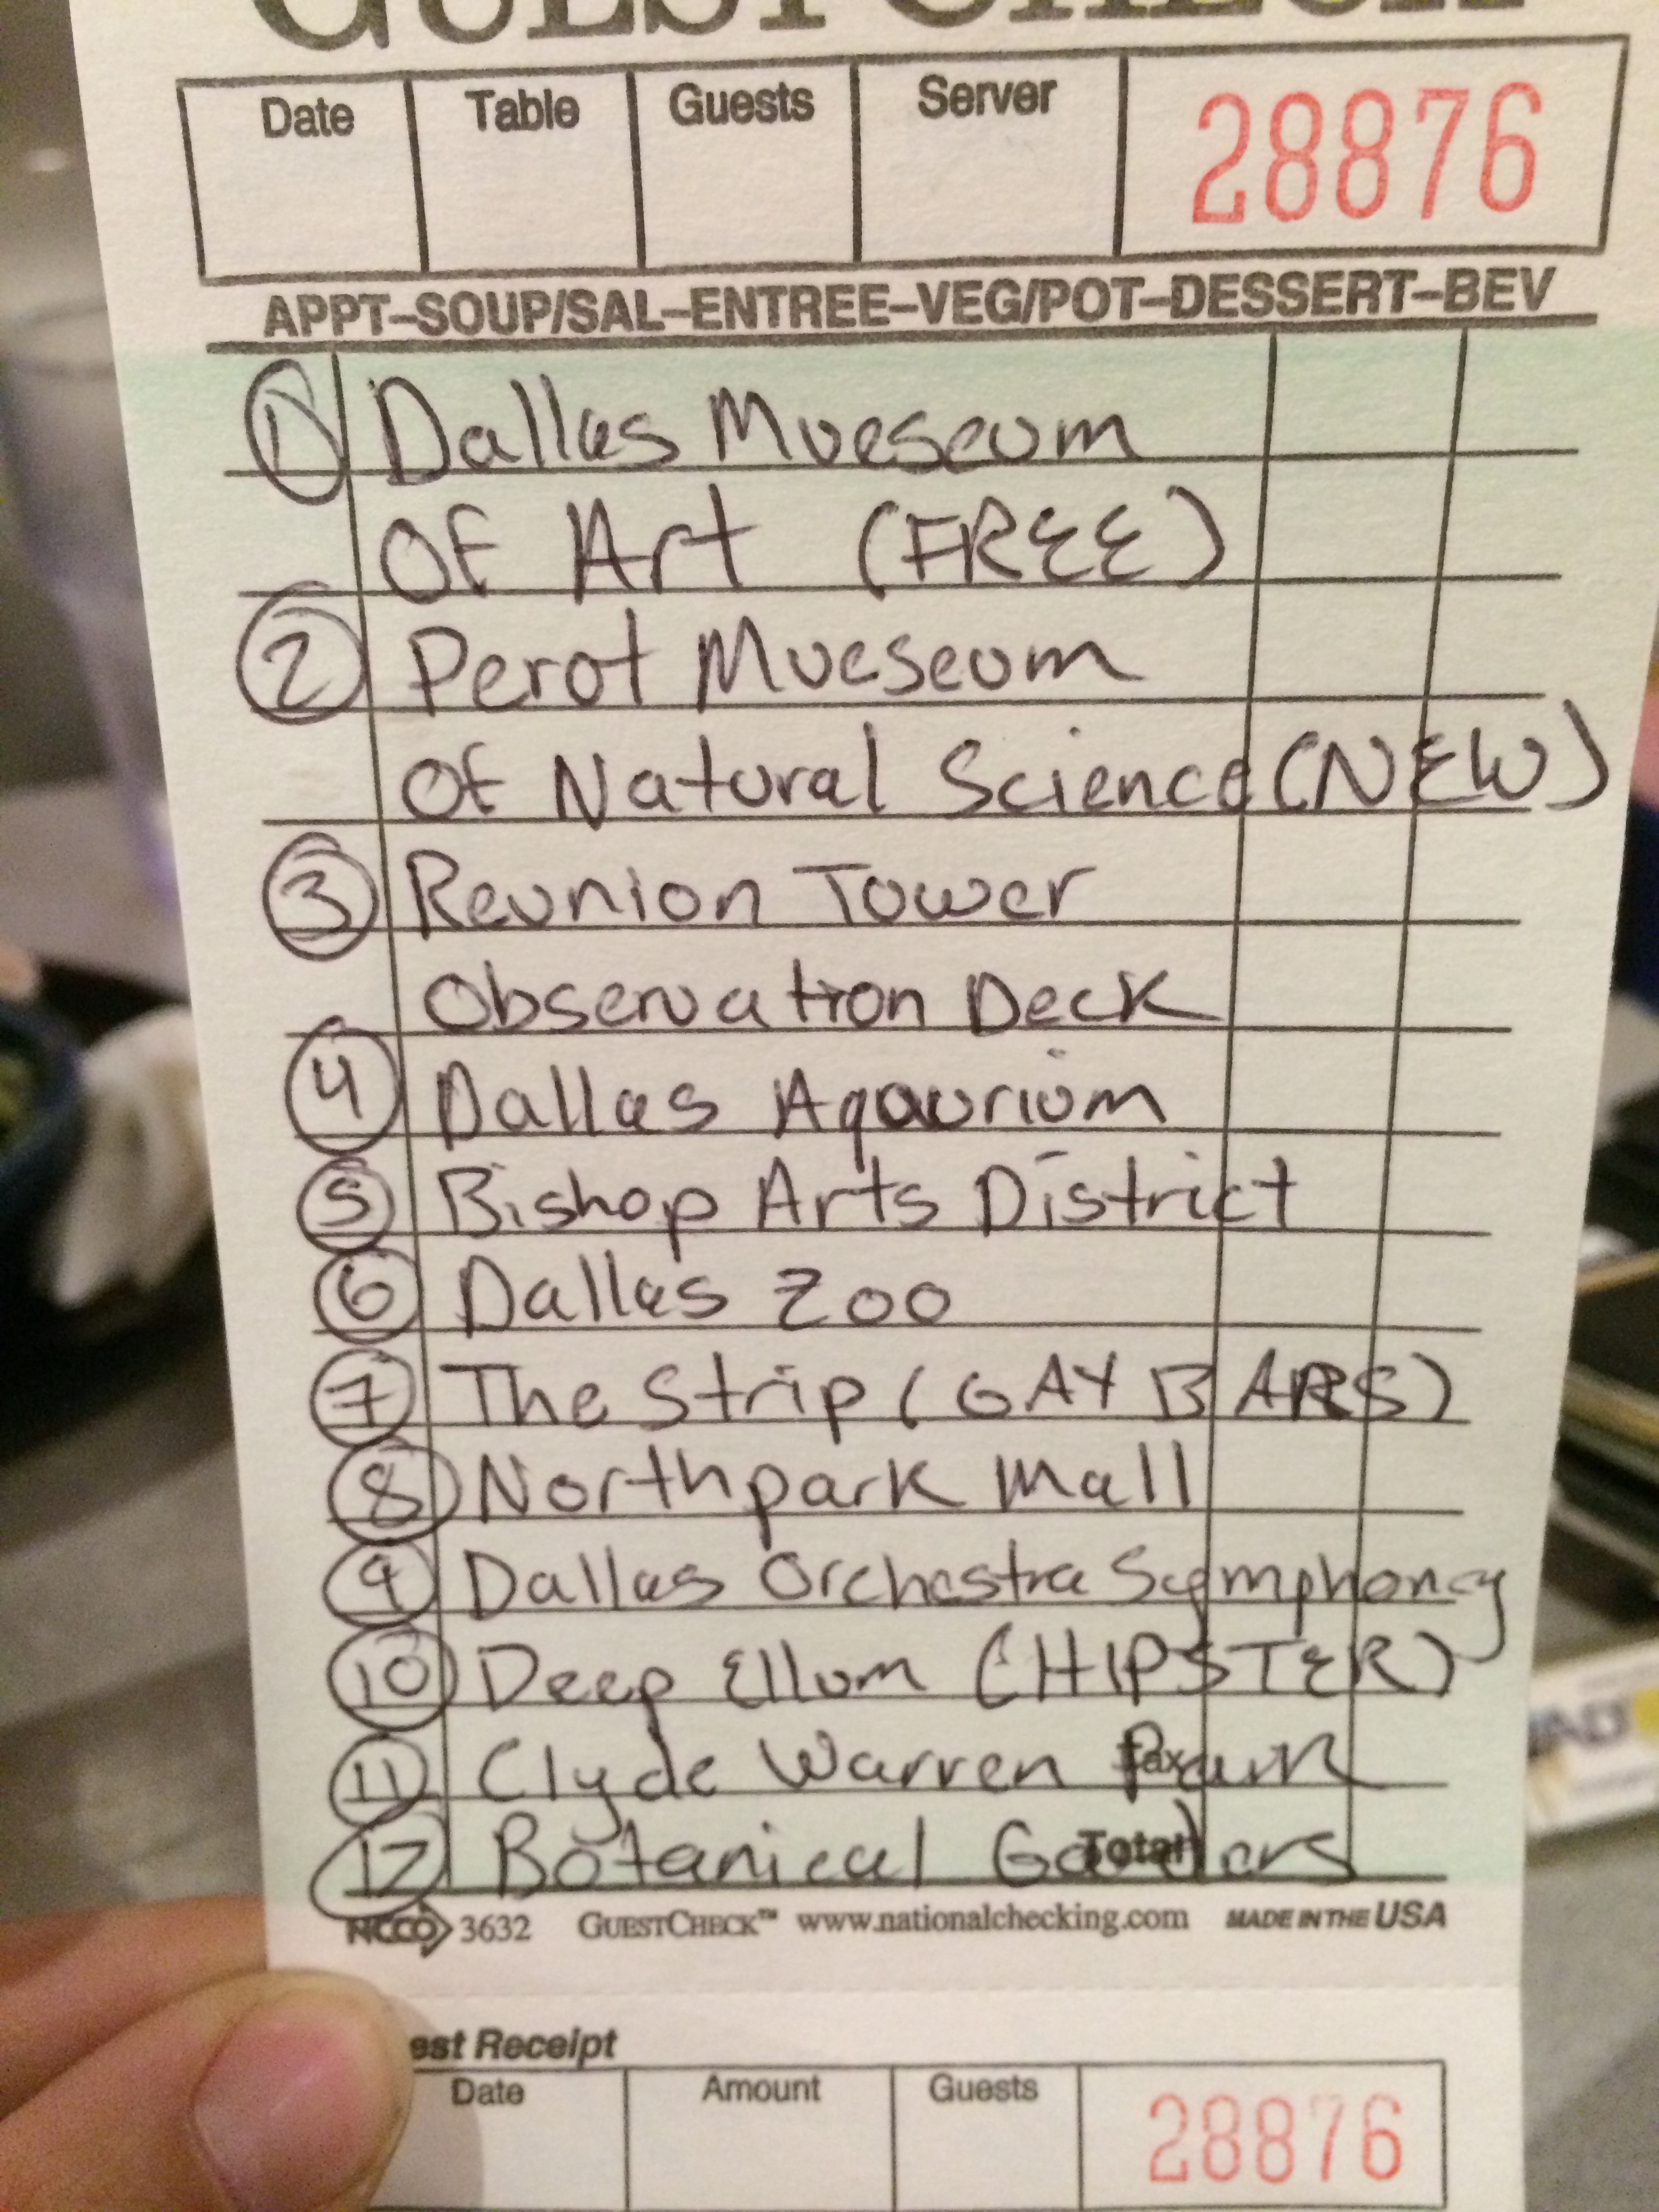 GUEST CHECK
Date Table Guests Server 28876
APPT–SOUP/SAL–ENTREE–VEG/POT–DESSERT–BEV
1 Dallas Mueseum
Of Art (FREE)
2 Perot Mueseum
Of Natural Science (NEW)
3 Reunion Tower
Observation Deck
4 Dallas Aqaurium
5 Bishop Arts District
6 Dallas Zoo
7 The Strip (GAY BARS)
8 Northpark Mall
9 Dallas Orchestra Symphony
10 Deep Ellum (HIPSTER)
11 Clyde Warren Park
Tax
12 Botanical Gardens
Total
NCCO 3632 GUESTCHECK™ www.nationalchecking.com MADE IN THE USA
est Receipt
Date Amount Guests 28876